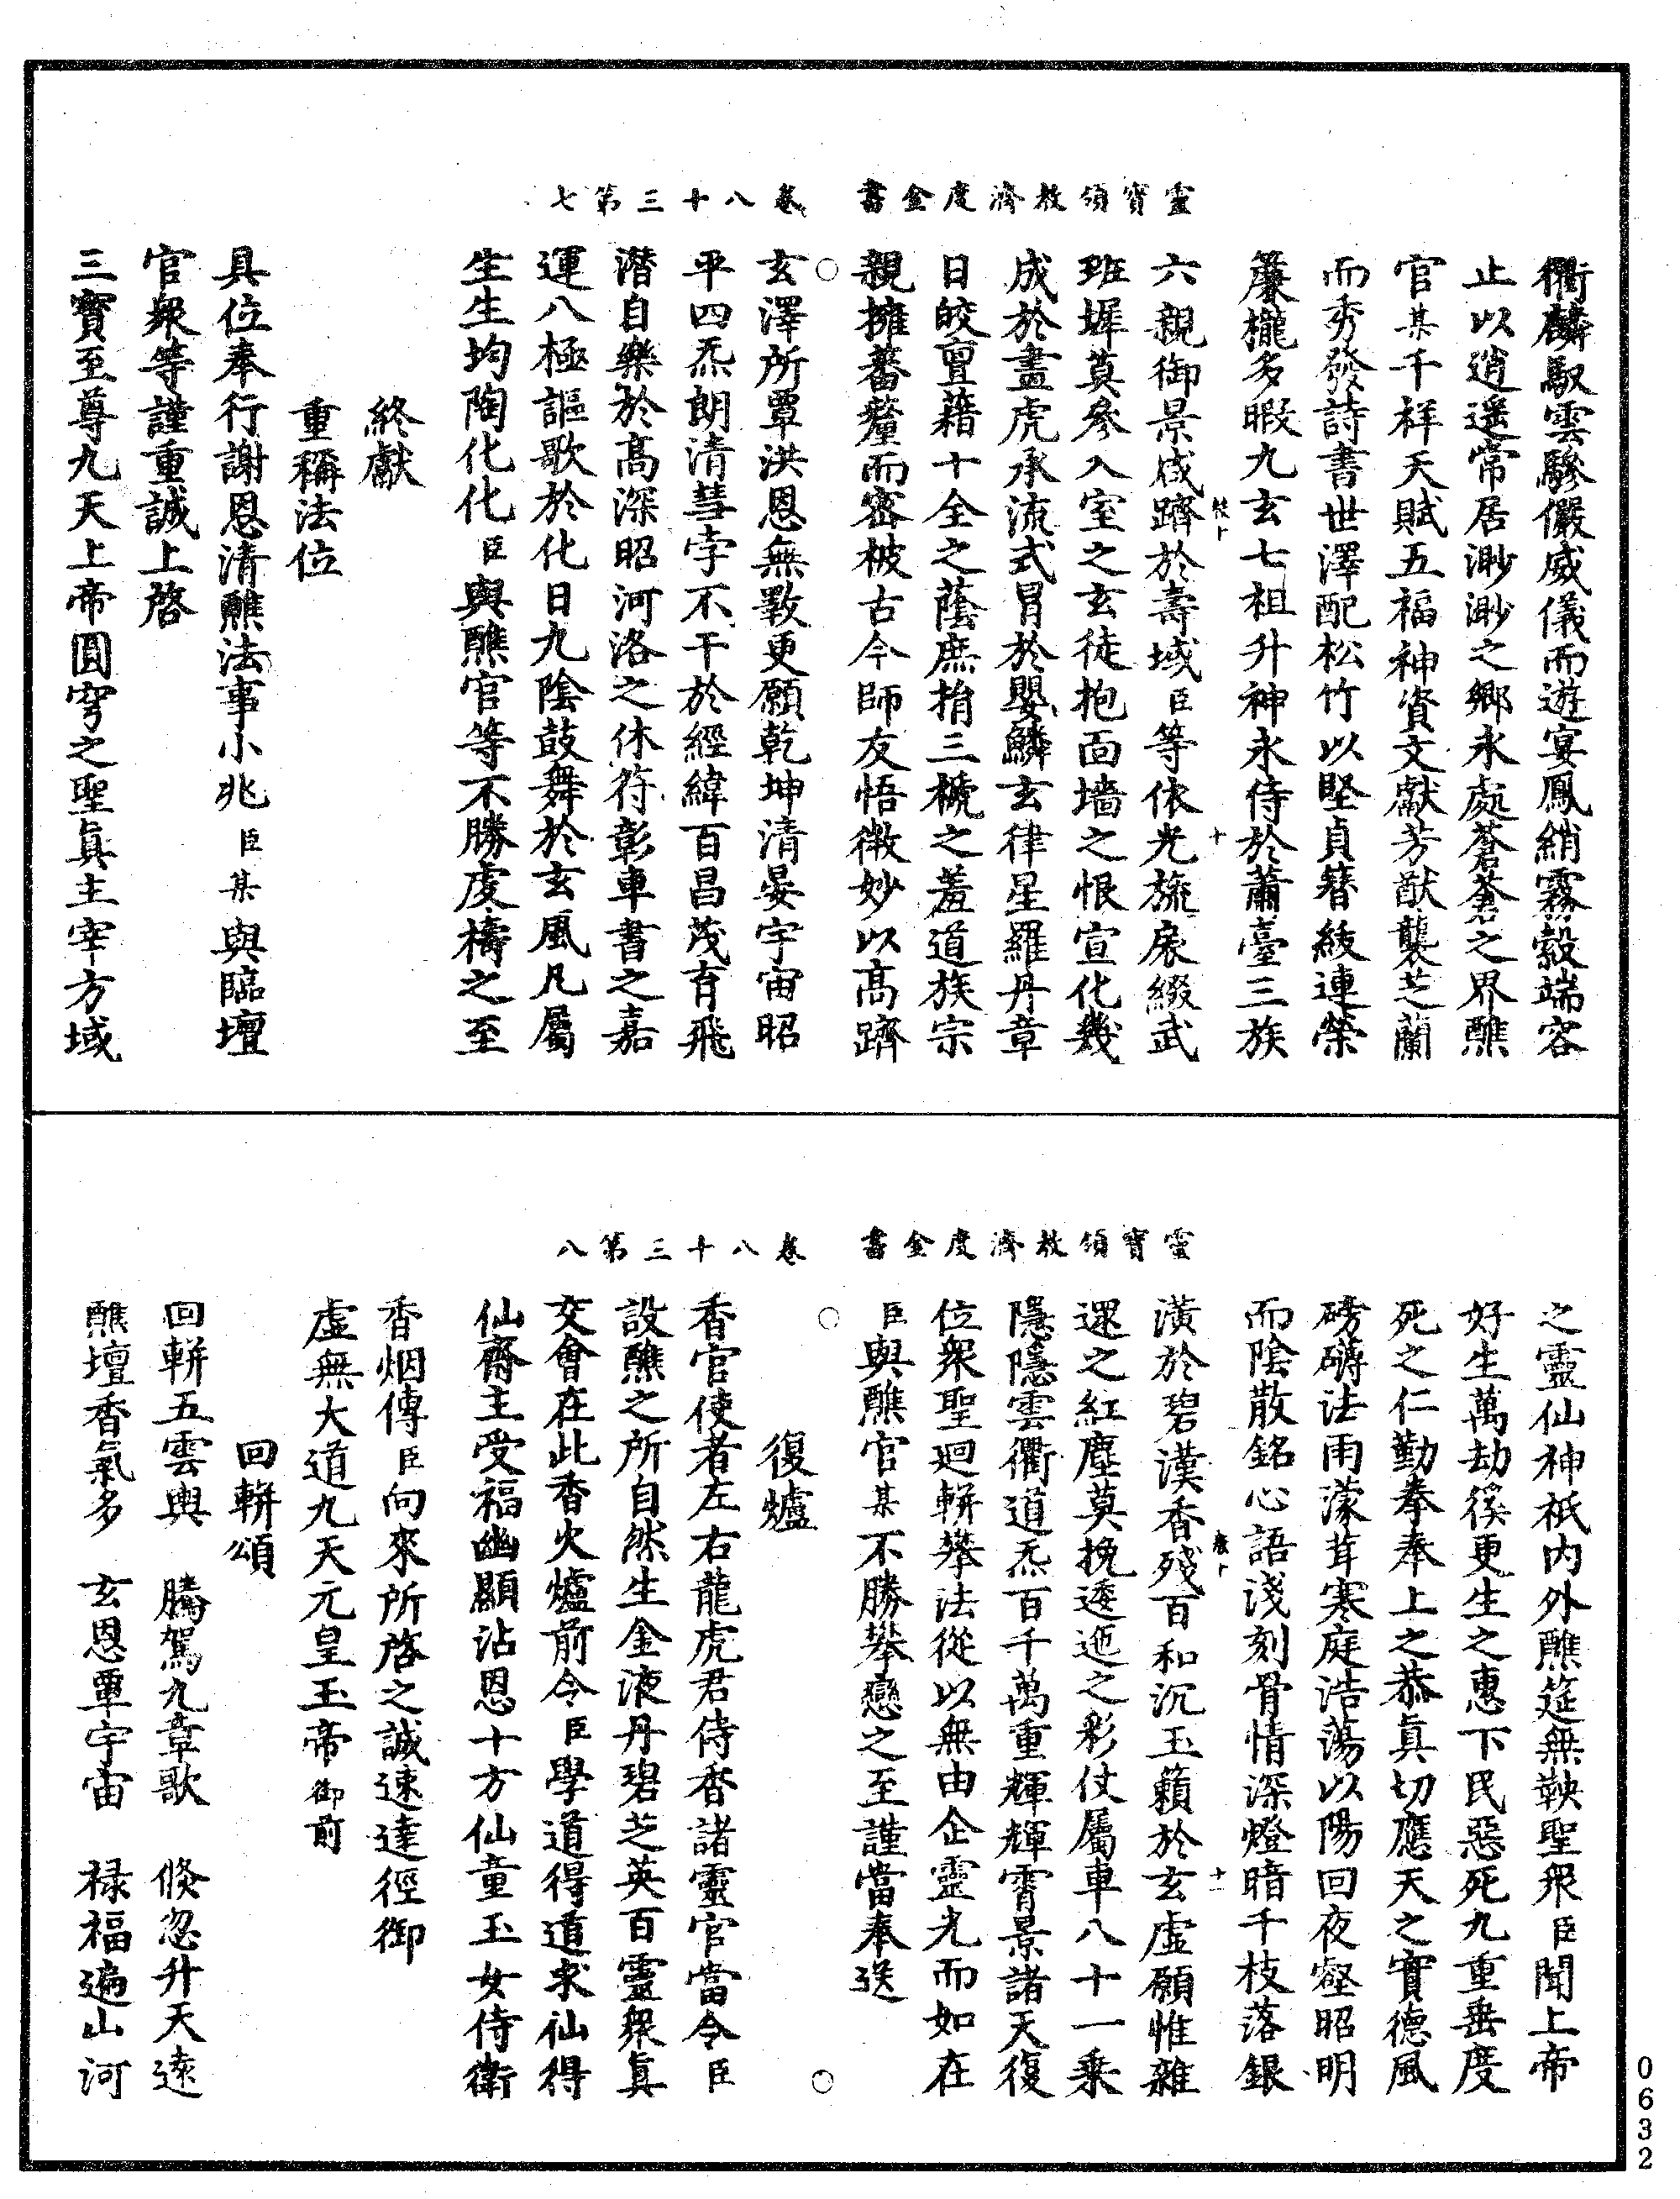 靈寶領教濟度金書　卷八十三第七
衢麟馭雲驂儼威儀而遊宴鳳綃霧縠端容
止以逍遙常居渺渺之鄉永處蒼蒼之界醮
官某千祥天賦五福神資文獻芳猷襲芝蘭
而秀發詩書世澤配松竹以堅貞簪紱連榮
簾櫳多暇九玄七祖升神永侍於蕭臺三族
六親御景咸躋於壽域臣等依光旒扆綴武
班墀莫參入室之玄徒抱面墻之恨宣化幾
成於畫虎承流式冒於嬰鱗玄律星羅丹章
日皎亶藉十全之蔭庶捐三褫之羞道族宗
親擁蕃釐而密被古今師友悟微妙以高躋
玄澤所覃洪恩無斁更願乾坤清晏宇宙昭
平四炁朗清彗孛不干於經緯百昌茂育飛
潛自樂於高深昭河洛之休符彰車書之嘉
運八極謳歌於化日九陰鼓舞於玄風凡屬
生生均陶化化臣與醮官等不勝虔禱之至
終獻
重稱法位
具位奉行謝恩清醮法事小兆臣某與臨壇
官眾等謹重誠上啓
三寶至尊九天上帝圓穹之聖眞主宰方域
靈寶領教濟度金書　卷八十三第八
之靈仙神祇內外醮筵無鞅聖眾臣聞上帝
好生萬劫徯更生之惠下民惡死九重垂度
死之仁勤拳奉上之恭眞切應天之實德風
磅礴法雨濛茸寒庭浩蕩以陽回夜壑昭明
而陰散銘心語淺刻骨情深燈暗千枝落銀
潢於碧漢香殘百和沉玉籟於玄虛願惟雜
還之紅塵莫挽逶迤之彩仗屬車八十一乘
隱隱雲衢道炁百千萬重輝輝霄景諸天復
位眾聖迴軿攀法從以無由企靈光而如在
臣與醮官某不勝攀戀之至謹當奉送
復爐
香官使者左右龍虎君侍香諸靈官當令臣
設醮之所自然生金液丹碧芝英百靈眾眞
交會在此香火爐前令臣學道得道求仙得
仙齋主受福幽顯沾恩十方仙童玉女侍衛
香烟傳臣向來所啓之誠速達徑御
虛無大道九天元皇玉帝御前
回軿頌
回軿五雲輿　騰駕九章歌　倏忽升天遠
醮壇香氣多　玄恩覃宇宙　祿福遍山河
0632